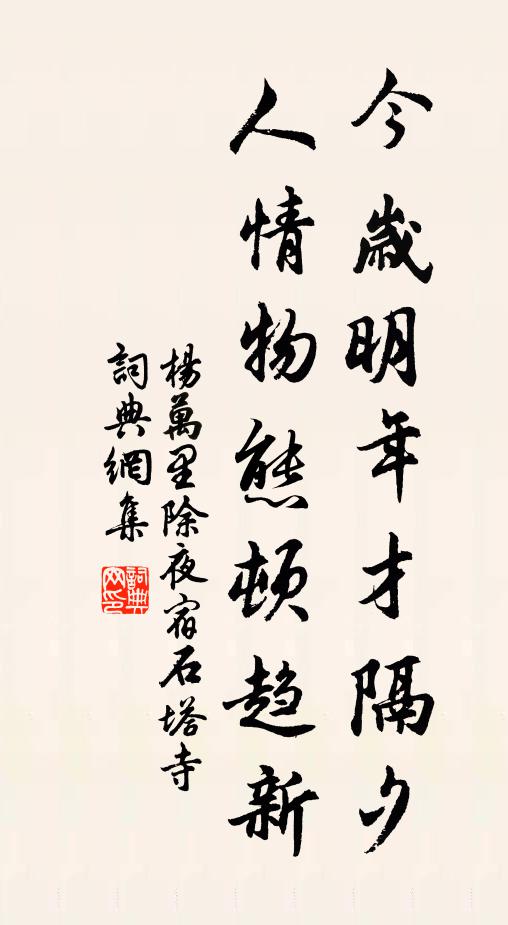 今歲明年才隔夕
人情物態頓趨新
楊萬里除夜宿石塔寺
詞典網集
詞典
网印